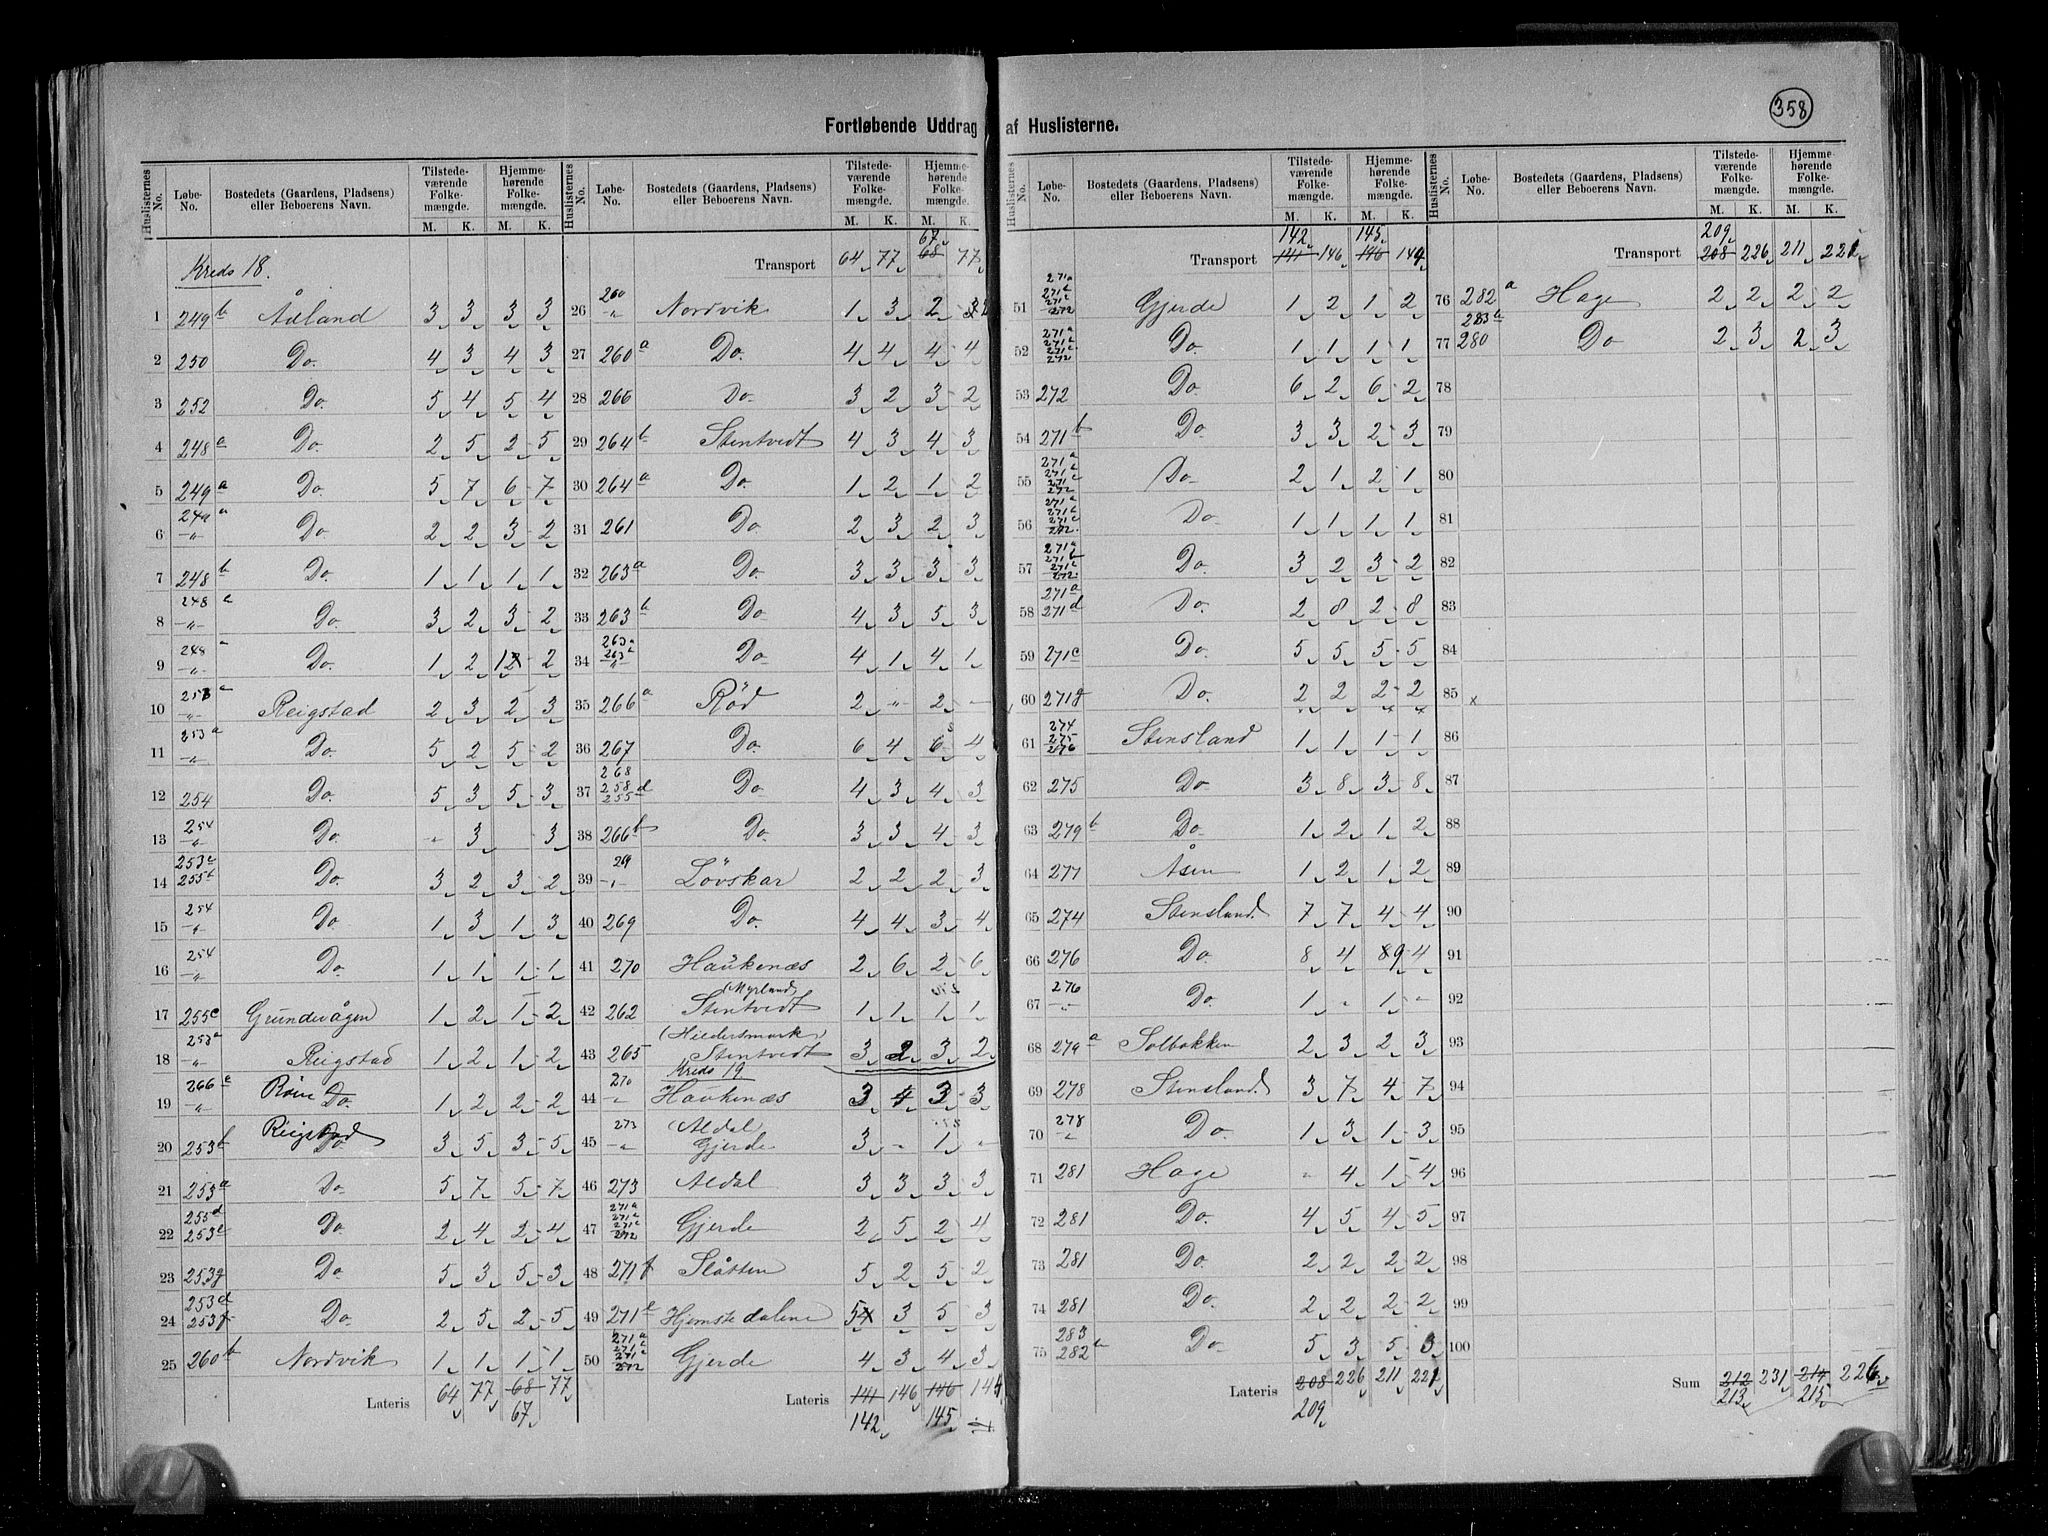 358
Fortløbende Uddrag af Huslisterne.
Huslisternes No. Løbe-No. Bostedets (Gaardens, Pladsens) eller Beboerens Navn. Tilstedeværende Folkemængde. M. K. Hjemmehørende Folkemængde. M. K.
Kreds 18.
1 249b Åsland 3 3 3 3
2 250 Do. 4 3 4 3
3 252 Do. 5 4 5 4
4 248a Do. 2 5 2 5
5 249a Do 5 7 6 7
6 249a -"- Do 2 2 3 2
7 248b Do. 1 1 1 1
8 248a -"- Do. 3 2 3 2
9 248a -"- Do. 1 2 1 2
10 253a -"- Reigstad 2 3 2 3
11 253a -"- Do. 5 2 5 2
12 254 Do. 5 3 5 3
13 254 " Do. - 3 3
14 253c 255b Do. 3 2 3 2
15 254 " Do. 1 3 1 3
16 254 -"- Do. 1 1 1 1
17 255c Grundevågen 1 2 1 2
18 253a -"- Reigstad 1 2 1 2
19 266c -"- Do. 1 2 2 2
20 253b Reigstad Do. 3 5 3 5
21 253a Do 5 7 5 7
22 255d 253e Do. 2 4 2 4
23 253g Do. 5 3 5 3
24 253d 253f Do. 2 5 2 5
25 260b Nordvik 1 1 1 1
Lateris 64 77 68 77
67
67
Transport 64 77 68 77
26 260 " Nordvik 1 3 2 2
27 260a Do. 4 4 4 4
28 266 Do- 3 2 3 2
29 264b Stentvedt 4 3 4 3
30 264a Do. 1 2 1 2
31 261 Do. 2 3 2 3
32 263a Do. 3 3 3 3
33 263b Do 4 3 5 3
34 263a 263c " Do 4 1 4 1
35 266a Röd 2 " 2 -
36 267 Do. 6 4 6 4
37 268 258 255d Do. 4 3 4 3
38 266b Do. 3 3 4 3
39 269 -"- Lövskar 2 2 2 3
40 269 Do. 4 4 3 4
41 270 Haukenæs 2 6 2 6
42 262 (Myrland) Stentvedt 1 1 1 1
43 265 (Hildersmark) Stentvedt 3 2 3 2
Kreds 19
44 270 " Haukenæs 3 4 3 3
45 273 -"- (Aldal Gjerde 3 - 1 -
46 273 Aldal 3 3 3 3
47 271a 271c 271c 272 Gjerde 2 5 2 4
48 271f Slåtten 5 2 5 2
49 271e Hjemstedalene 5 3 5 3
50 271a 271c 271c 272 Gjerde 4 3 4 3
Lateris 141 146 146 144
142 145
142 145
Transport 141 146 146 144
51 271a 271b 271c 272 Gjerde 1 2 1 2
52 271a 271b 271c 272 Do. 1 1 1 1
53 272 Do 6 2 6 2
54 271b Do 3 3 2 3
55 271a 271b 271c 272 Do- 2 1 2 1
56 271a 271b 271c 272 Do- 1 1 1 1
57 271a 271b 271c 272 Do. 3 2 3 2
58 271a 271d Do. 2 8 2 8
59 271c Do. 5 5 5 5
60 271g Do. 2 2 2 2
61 274 275 276 Stensland 1 1 1 1
62 275 Do 3 8 3 8
63 279b Do- 1 2 1 2
64 277 Åsen 1 2 1 2
65 274 Stensland 7 7 4 4
66 276 Do. 8 4 89 4
67 276 -"- Do 1 - 1 -
68 279a Solbakken 2 3 2 3
69 278 Stensland 3 7 4 7
70 278 -"- Do. 1 3 1 3
71 281 Hage - 4 1 4
72 281 Do. 4 5 4 5
73 281 Do 2 2 2 2
74 281 Do. 2 2 2 2
75 283 282b Do. 5 3 5 3
Lateris 208 226 211 221
209
209
Transport 208 226 211 221
76 282a Hage 2 2 2 2
77 283a 280 Do 2 3 2 3
78
79
80
81
82
83
84
85 x
86
87
88
89
90
91
92
93
94
95
96
97
98
99
100
Sum 212 231 214 226
213 215